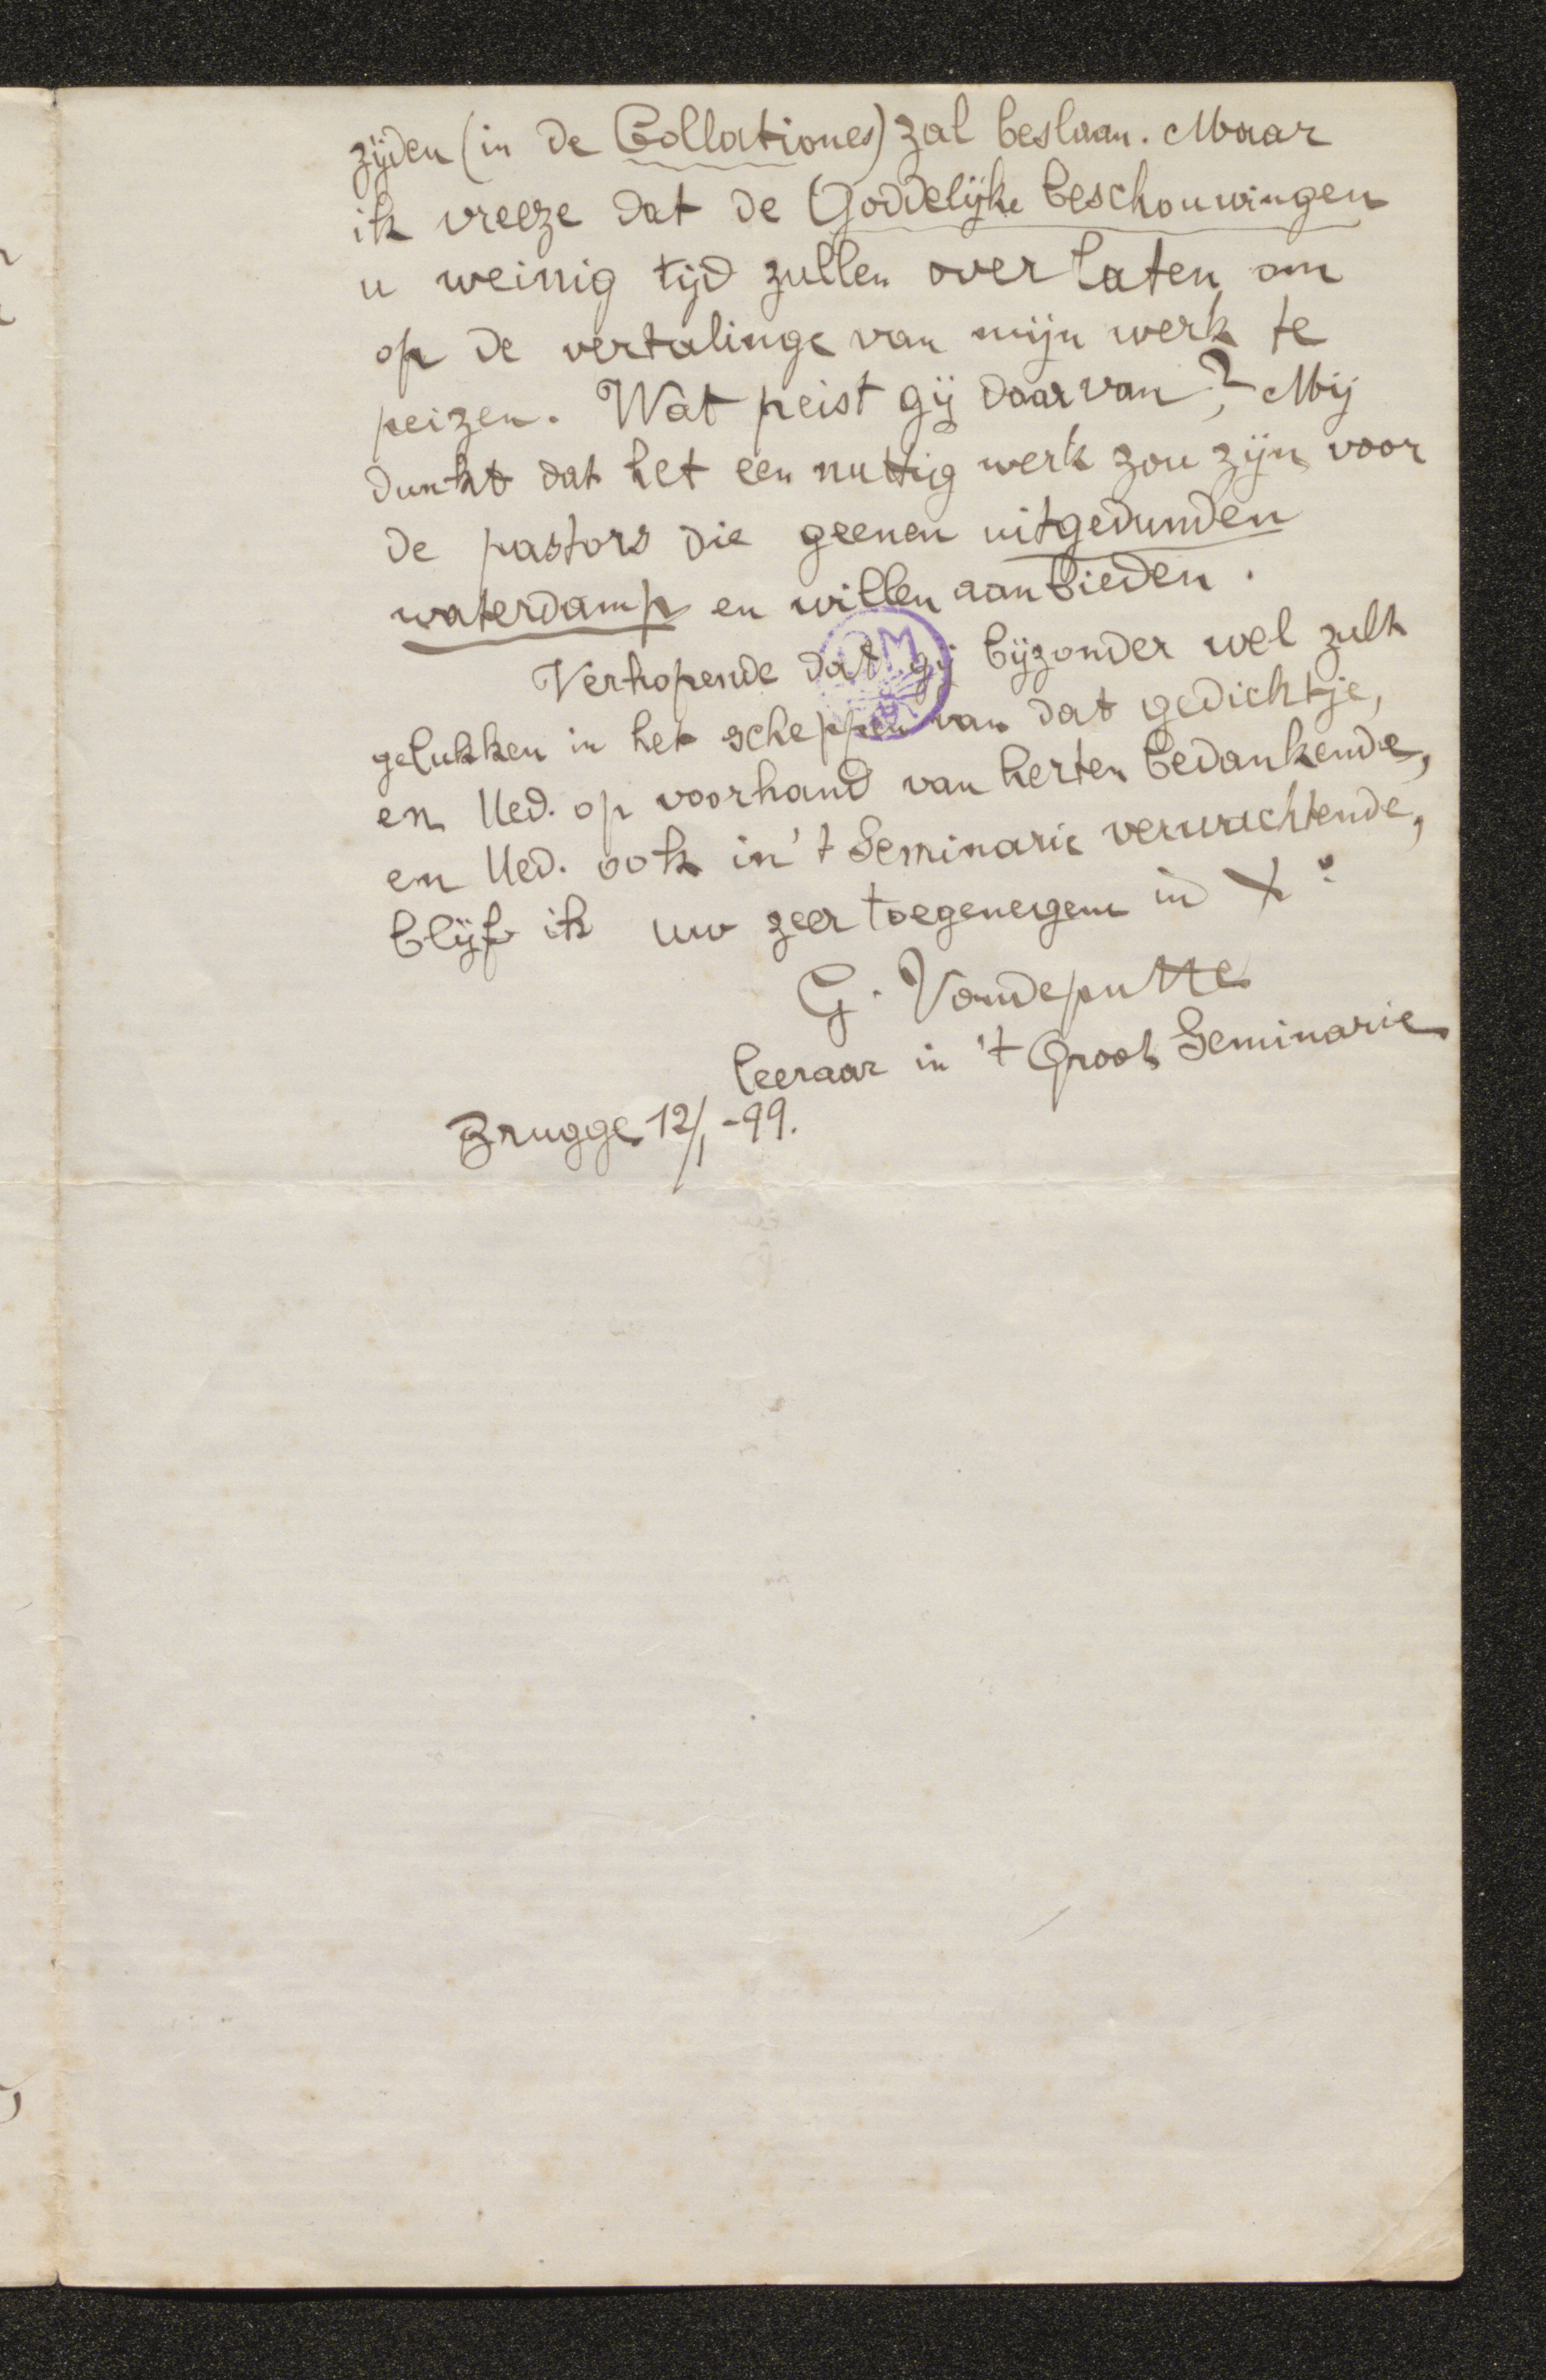 zijden (in de Collationes) zal beslaan. Maar
ik vreeze dat de Goddelijke beschouwingen
u weinig tijd zullen over laten om
op de vertalinge van mijn werk te
peizen. Wat peist gij daarvan? Mij
dunkt dat het een nuttig werk zou zijn voor
de pastors die geenen uitgedunden
waterdamp en willen aanbieden.
Verhopende dat gij bijzonder wel zult
gelukken in het scheppen van dat gedichtje,
en Ued. op voorhand van herten bedankende,
en Ued. ook in 't Seminarie verwachtende,
blijf ik uw zeer toegenegene in Xº
G. Vandeputte
leeraar in 't Groot Seminarie
Brugge 12/1 -99.